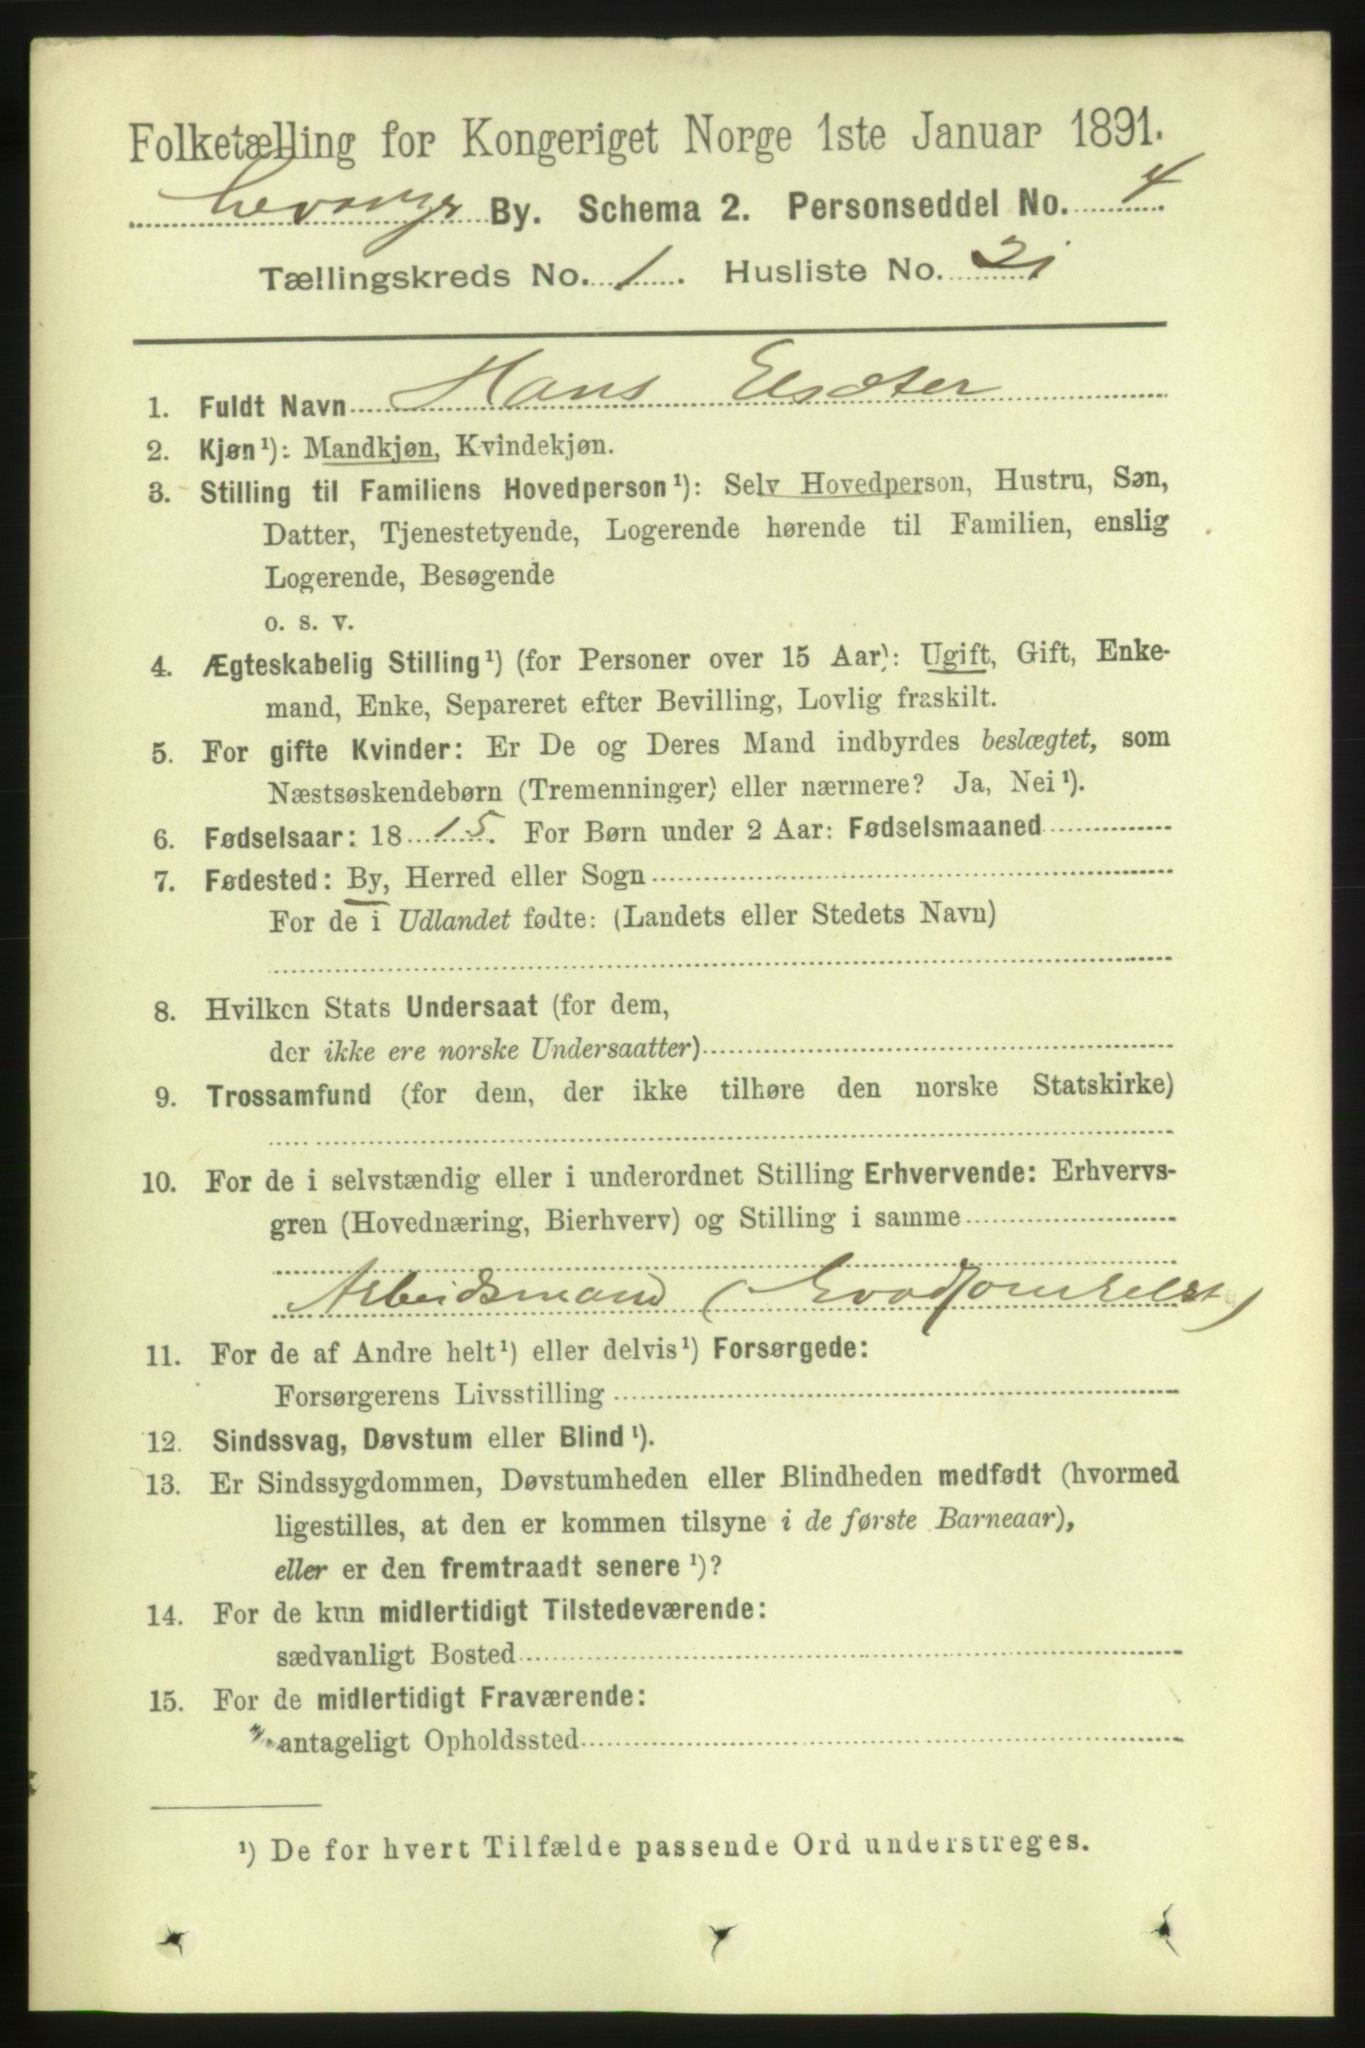 Folketælling for Kongeriget Norge 1ste Januar 1891.
Levanger By. Schema 2. Personseddel No. 4
Tællingskreds No. 1. Husliste No. 21
1. Fuldt Navn Hans Elster
2. Kjøn¹): Mandkjøn, Kvindekjøn.
3. Stilling til Familiens Hovedperson¹): Selv Hovedperson, Hustru, Søn,
Datter, Tjenestetyende, Logerende hørende til Familien, enslig
Logerende, Besøgende
o. s. v.
4. Ægteskabelig Stilling¹) (for Personer over 15 Aar): Ugift, Gift, Enke-
mand, Enke, Separeret efter Bevilling, Lovlig fraskilt.
5. For gifte Kvinder: Er De og Deres Mand indbyrdes beslægtet, som
Næstsøskendebørn (Tremenninger) eller nærmere? Ja, Nei¹).
6. Fødselsaar: 1815. For Børn under 2 Aar: Fødselsmaaned
7. Fødested: By, Herred eller Sogn
For de i Udlandet fødte: (Landets eller Stedets Navn)
8. Hvilken Stats Undersaat (for dem,
der ikke ere norske Undersaatter)
9. Trossamfund (for dem, der ikke tilhøre den norske Statskirke)
10. For de i selvstændig eller i underordnet Stilling Erhvervende: Erhvervs-
gren (Hovednæring, Bierhverv) og Stilling i samme
Arbeidsmand
11. For de af Andre helt¹) eller delvis¹) Forsørgede:
Forsørgerens Livsstilling
12. Sindssvag, Døvstum eller Blind¹).
13. Er Sindssygdommen, Døvstumheden eller Blindheden medfødt (hvormed
ligestilles, at den er kommen tilsyne i de første Barneaar),
eller er den fremtraadt senere¹)?
14. For de kun midlertidigt Tilstedeværende:
sædvanligt Bosted
15. For de midlertidigt Fraværende:
antageligt Opholdssted
¹) De for hvert Tilfælde passende Ord understreges.